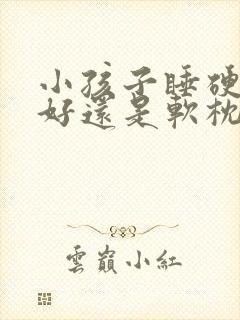 小孩子睡硬
好還是軟枕
雲巔小紅